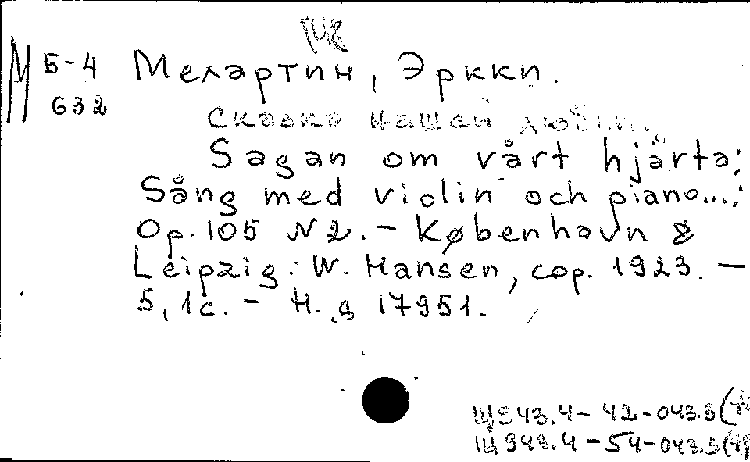 М Б-4 Меларtин, Эркки.
632
Сказка нашей любви.
Sagan om vårt hjärta;
Sång med violin och piano...;
Op. 105 N2. - København &
Leipzig: W. Hansen, cop. 1923. -
5,1 с. - Н. д 17951.
Щ943.4-42-043.5(4
Щ949.4-54-043.5(4